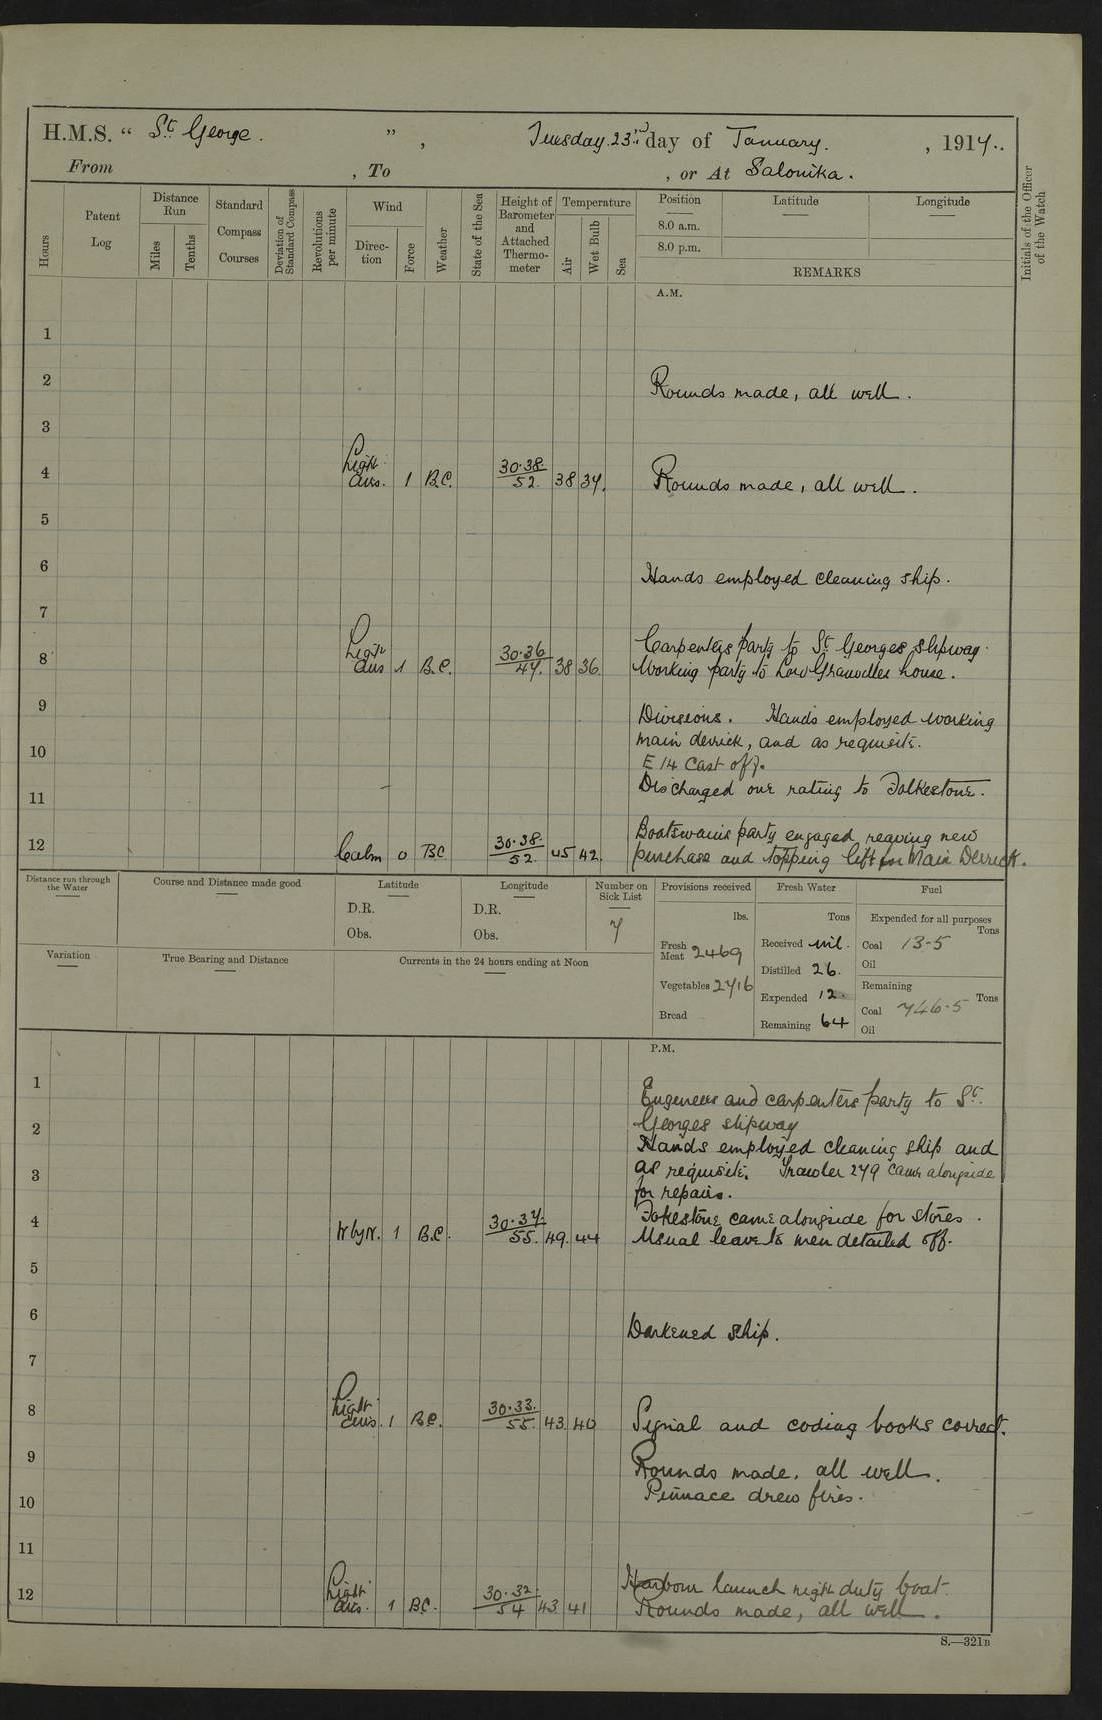 H.M.S. " St George. ", Tuesday. 23rd day of January. , 1917..
From , To , or At Salonika.
Initials of the Officer of the Watch
Hours
Patent Log
Distance Run
Miles
Tenths
Standard Compass Courses
Deviation of Standard Compass
Revolutions per minute
Wind
Direction
Force
Weather
State of the Sea
Height of Barometer and Attached Thermometer
Temperature
Air
Wet Bulb
Sea
Position
8.0 a.m.
8.0 p.m.
Latitude
Longitude
REMARKS
A.M.
1
2 Rounds made, all well.
3
4 Light airs. 1 B.C. 30.38 52 38 37. Rounds made, all well.
5
6 Hands employed cleaning ship.
7
Carpenters party to St Georges slipway.
8 Light airs 1 B.C. 30.36 47. 38 36 Working party to house.
9 Divisions. Hands employed working
10 main derrick, and as requisite.
E 14 cast off.
11 Discharged one rating to Folkestone.
Boatswains party engaged reeving new
12 Calm 0 BC 30.38 52. 45 42. purchase and topping lift for Main Derrick.
Distance run through the Water
Course and Distance made good
Latitude
D.R.
Obs.
Longitude
D.R.
Obs.
Number on Sick List
7
Provisions received
lbs.
Fresh Meat 2469
Vegetables 2716
Bread
Fresh Water
Tons
Received nil.
Distilled 26.
Expended 12.
Remaining 64
Fuel
Expended for all purposes
Tons
Coal 13-5
Oil
Remaining
Tons
Coal 746.5
Oil
Variation
True Bearing and Distance
Currents in the 24 hours ending at Noon
P.M.
1 Engineers and carpenters party to St.
2 Georges slipway
Hands employed cleaning ship and
3 as requisite. Trawler 279 came alongside
for repairs.
4 Folkestone came alongside for stores.
W by N. 1 B.C. 30.37. 55. 49. 44 Usual leave to men detailed off.
5
6 Darkened ship.
7
8 Light airs. 1 B.C. 30.33. 55. 43. 40 Signal and coding books correct.
9 Rounds made, all well.
10 Pinnace drew fires.
11
12 Harbour launch night duty boat.
Light airs. 1 BC. 30.32 54 43 41 Rounds made, all well.
S.—321B